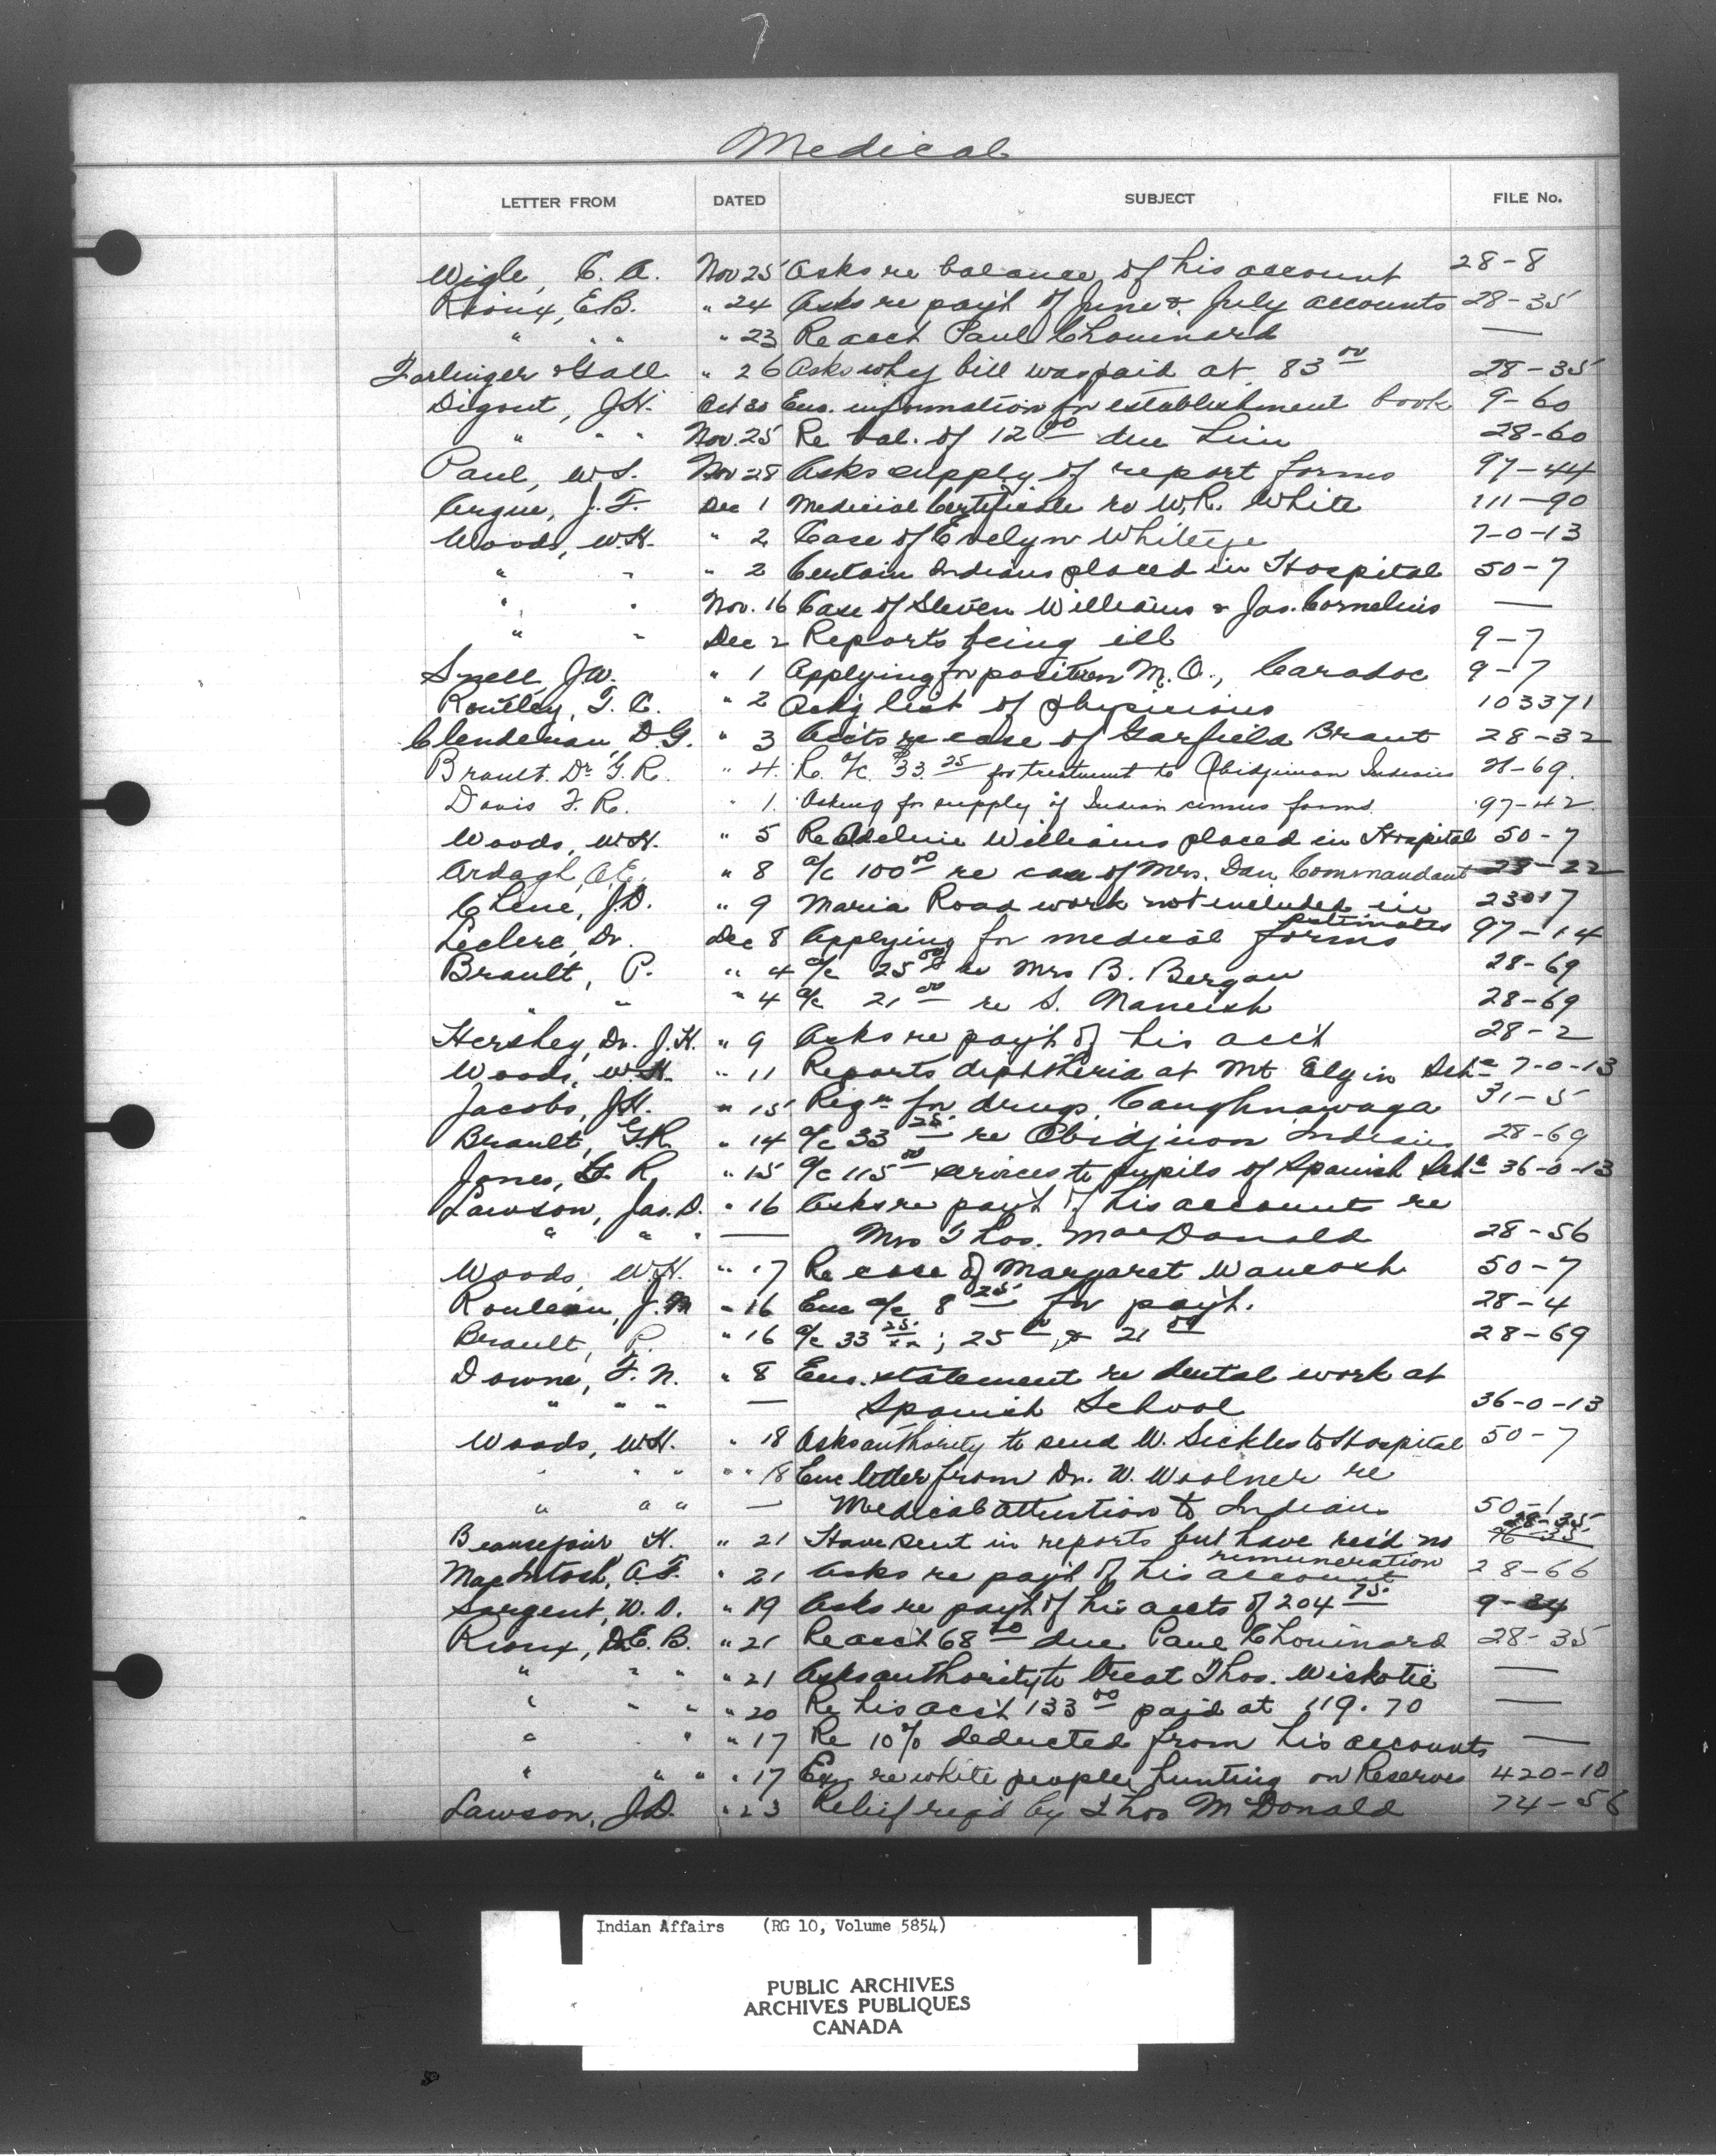 Medical
LETTER FROM DATED SUBJECT FILE No.
Wigle, C. A. Nov 25 Asks re balance of his account 28-8
Rioux, E.B. " 24 Asks re pay't of June & July accounts 28-35
" " " " 23 Re acct Paul Chouinard —
Farlinger & Gall " 26 Asks why bill was paid at 83 00 28-35
Digout, J.H. Oct 30 Enc. information for establishment book 9-60
" " " Nov. 25 Re bal. of 12 00 due him 28-60
Paul, W.S. Nov 28 Asks supply of report forms 97-44
Argue, J.F. Dec 1 Medical Certificate re W.R. White 111-90
Woods, W.H. " 2 Case of Evelyn Whiteeye 7-0-13
" " " 2 Certain Indians placed in Hospital 50-7
" " Nov. 16 Case of Steven Williams & Jas. Cornelius —
" " Dec 2 Reports being ill 9-7
Snell, J.W. " 1 Applying for position M.O., Caradoc 9-7
Routley, T. C. " 2 Ask'g list of physicians 103371
Clendenan, D.G. " 3 Acc'ts re case of Garfield Brant 28-32
Brault. Dr G. R. " 4. Re a/c $33. 25 for treatment to Obidjiwan Indians 28-69.
Davis F. R. " 1. Asking for supply of Indian census forms. 97-42
Woods, W.H. " 5 Re Adeline Williams placed in Hospital 50-7
Ardagh, A.E. " 8 a/c 100 00 re case of Mrs. Dan Commandant 28-22
Chene, J.D. " 9 Maria Road work not included in 23017
estimates
Leclerc, Dr. Dec 8 Applying for medical forms 97-14
Brault, P. " 4 a/c 25 00 re Mrs B. Bergau 28-69
" " " 4 a/c 21 00 re S. Naneish 28-69
Hershey, Dr. J.H. " 9 Asks re pay't of his acc't 28-2
Woods, W.H. " 11 Reports diphtheria at Mt Elgin Schl 7-0-13
Jacobs, J.H. " 15 Reqn for drugs, Caughnawaga 31-5
Brault, G.R. " 14 a/c 33 25 re Obidjuon Indians 28-69
Jones, R. " 15 a/c 115 00 services to pupils of Spanish Schl 36-0-13
Lawson, Jas. D. " 16 Asks re pay't of his accounts re
" " " — Mrs Thos. MacDonald 28-56
Woods, W.H. " 17 Re case of Margaret Waucosh 50-7
Rouleau, J.M " 16 Enc a/c 8 25 for pay't. 28-4
Brault, P. " 16 a/c 33 25; 25 00 & 21 00 28-69
Downe, F. N. " 8 Enc. statement re dental work at
" " " — Spanish School 36-0-13
Woods, W.H. " 18 Asks authority to send W. Sickles to Hospital 50-7
" " " " 18 Enc letter from Dr. W. Woolner re
" " " — Medical attention to Indians 50-1
28-35
Beausejour, H. " 21 Have sent in reports but have rec'd no
remuneration
MacIntosh, A.F. " 21 Asks re pay't of his account 28-66
Sargent, W. D. " 19 Asks re pay't of his accts of 204 75 9-24
Rioux, Dr. E. B. " 21 Re acc't 68 50 due Paul Chouinard 28-35
" " " " 21 Asks authority to treat Thos. Wiskotie —
" " " " 20 Re his acc't 133 00 paid at 119.70 —
" " " " 17 Re 10% deducted from his accounts —
" " " " 17 Enq re white people hunting on Reserves 420-10
Lawson, J.D. " 23 Relief req'd by Thos McDonald 74-56
Indian Affairs (RG 10, Volume 5854)
PUBLIC ARCHIVES
ARCHIVES PUBLIQUES
CANADA